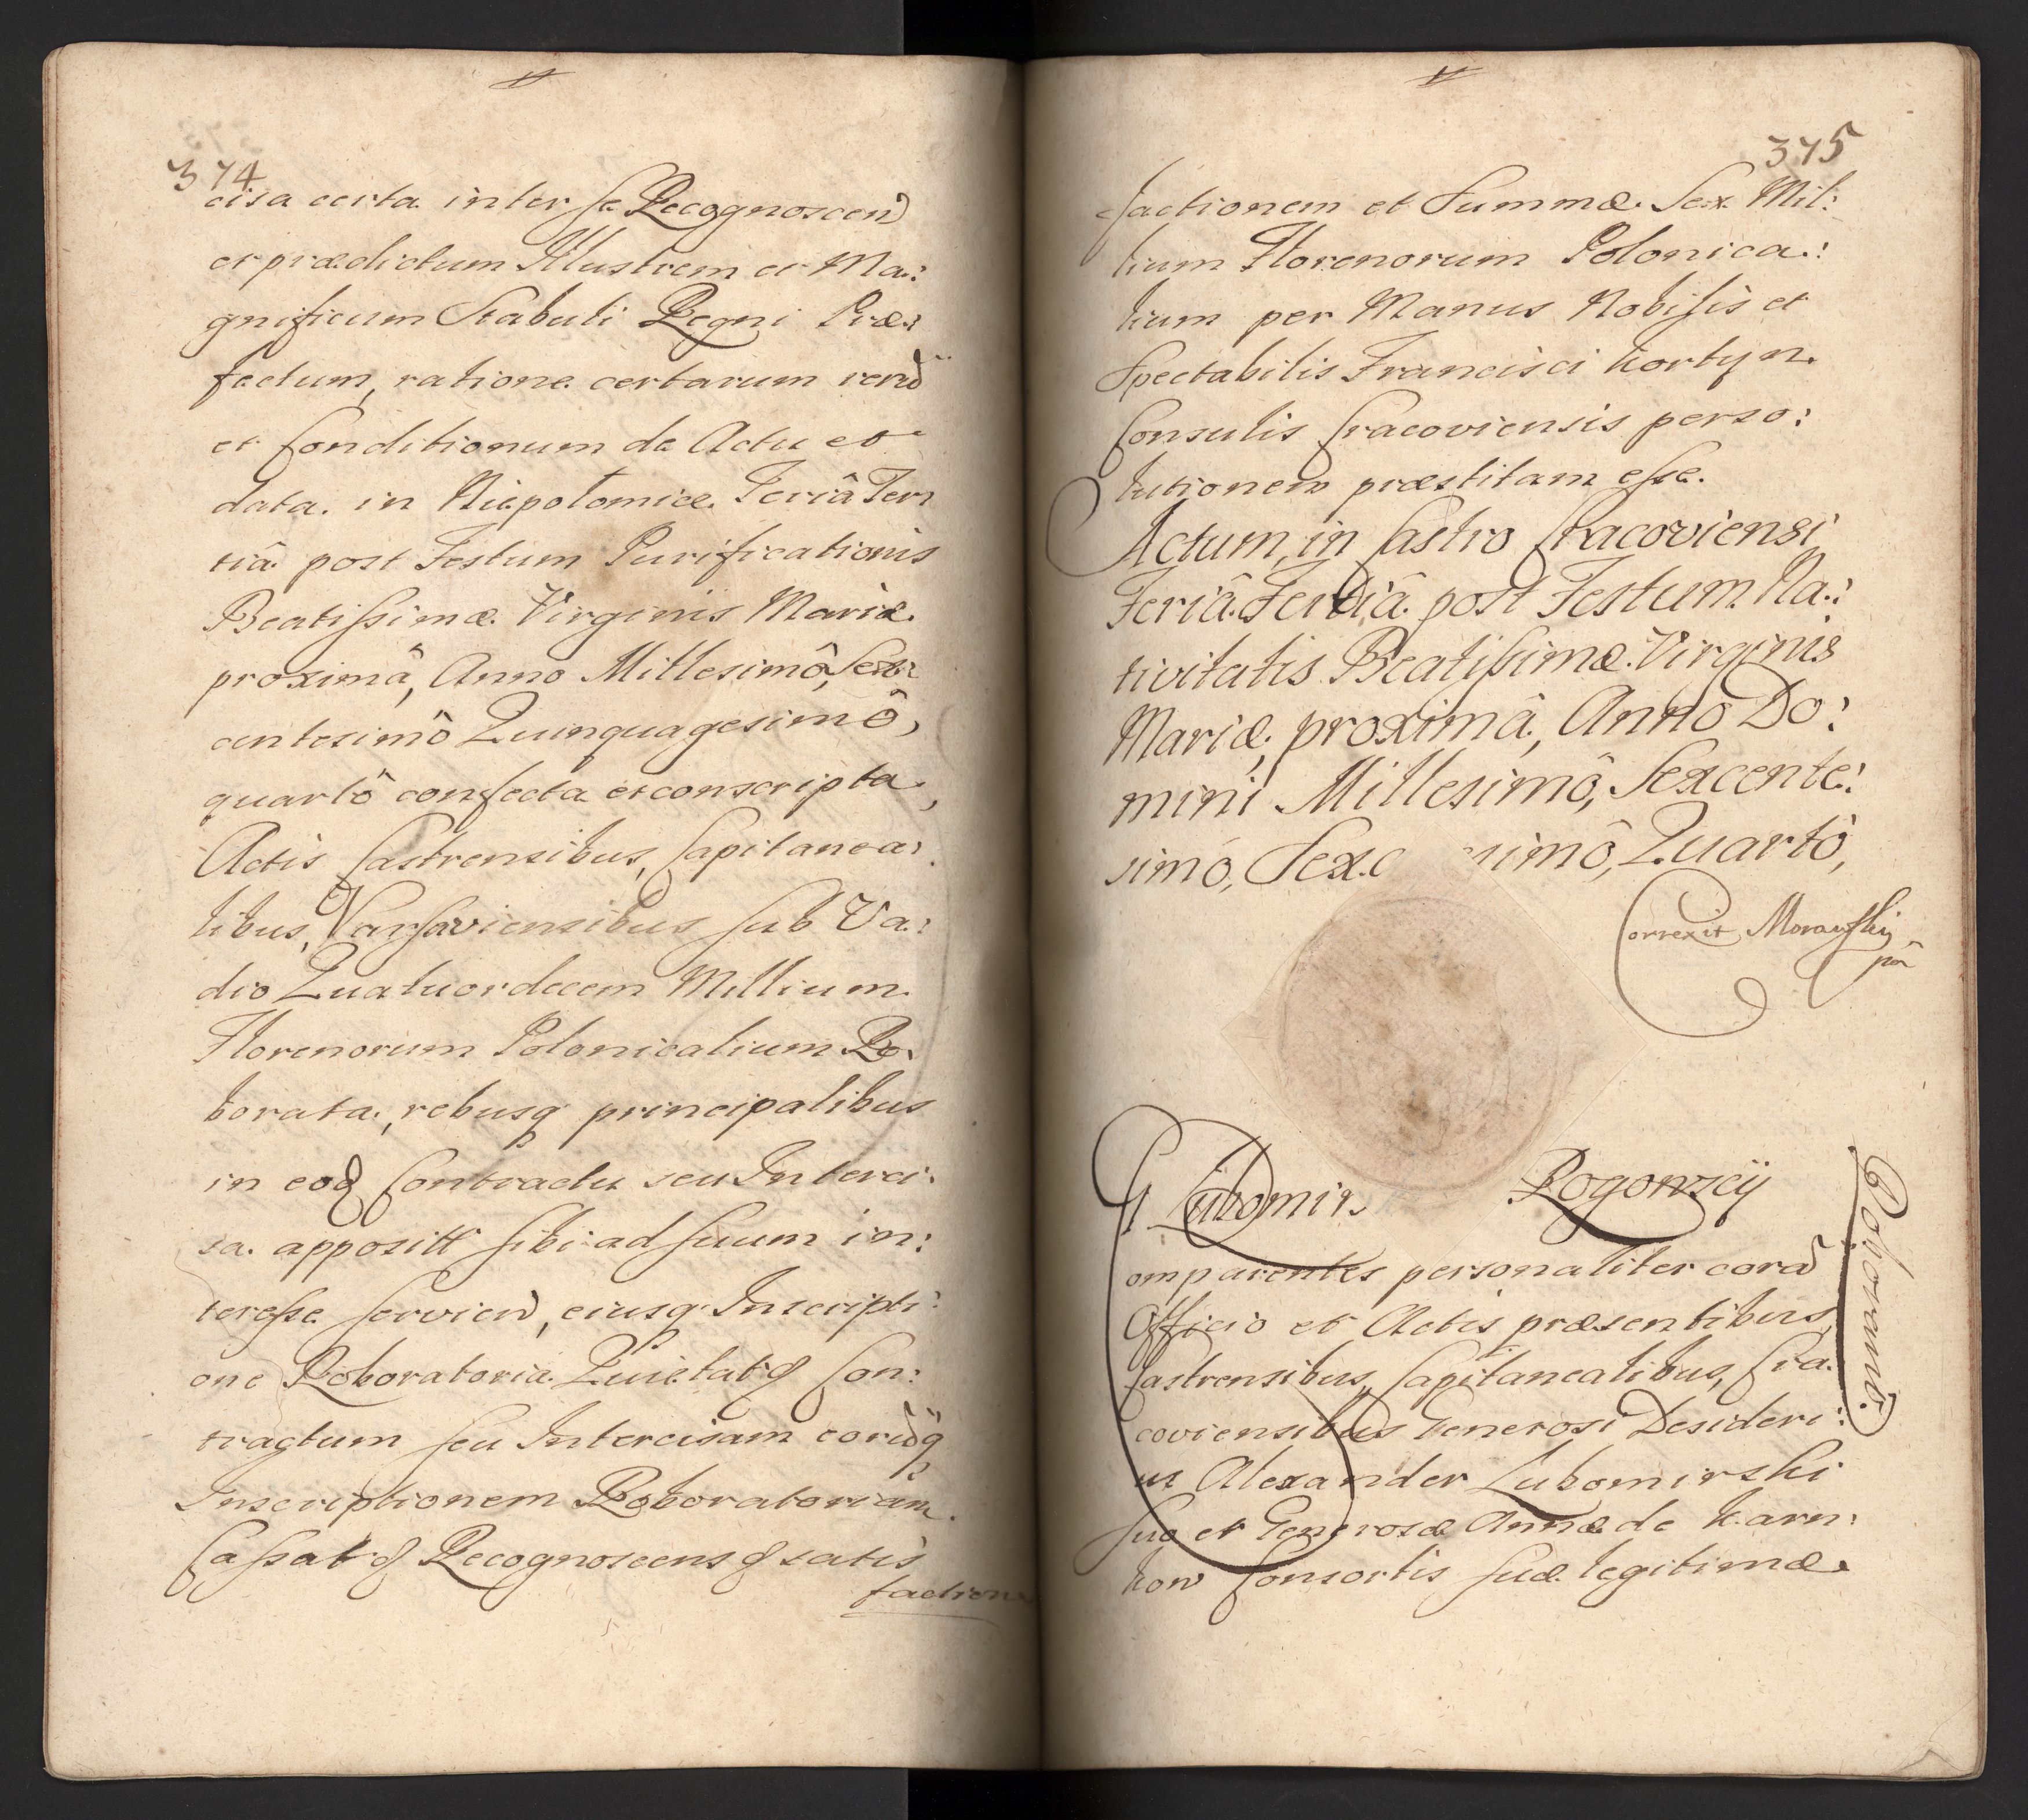 374
cisa certa inter se Recognoscen
et prædictum Illustrem et Ma:
gnificum Stabuli Regni Præ:
fectum, ratione certarum rerū
et Conditionum de Actu et
data in Niepołomice Feriâ Ter:
tiâ post Festum Purificationis
Beatissimæ Virginis Mariæ
proximâ, Anno Millesimô, Sex:
centesimô Quinquagesimô,
quartô confecta et conscripta,
Actis Castrensibus, Capitanea:
libus, Varsaviensibus sub Va:
dio Quatuordecem Millium
Florenorum Polonicalium Ro:
borata, rebusq principalibus
in eod Contractu seu Interci:
sa apposit sibi ad suum in:
teresse servien, eiusq Inscripti:
one Roboratoria Quietat Con:
tractum seu Intercisam eorūq
Inscriptionem Roboratoriam
Cassat Recognoscens satis
factione
375
factionem et Summæ Sex Mil:
lium Florenorum Polonica:
lium per Manus Nobilis et
Spectabilis Francisci Kortyn
Consulis Cracoviensis perso:
lutionem præstitam esse.
Actum in Castro Cracoviensi
Feriâ Tertiâ post Festum Na:
tivitatis Beatissimæ Virginis
Mariæ, proximâ, Anno Do:
mini Millesimô, Sexcente:
simô, Sexa esimô, Quartô,
Correxit Morawski
pm
G Lubomir Rogowscij
Roborant.
Comparentes personaliter corā
Officio et Actis præsentibus,
Castrensibus, Capitanealibus, Cra:
coviensibus Generosi Desideri:
us Alexander Lubomirski
suo et Generosæ Annæ de Karn:
kow Consortis suæ legitimæ